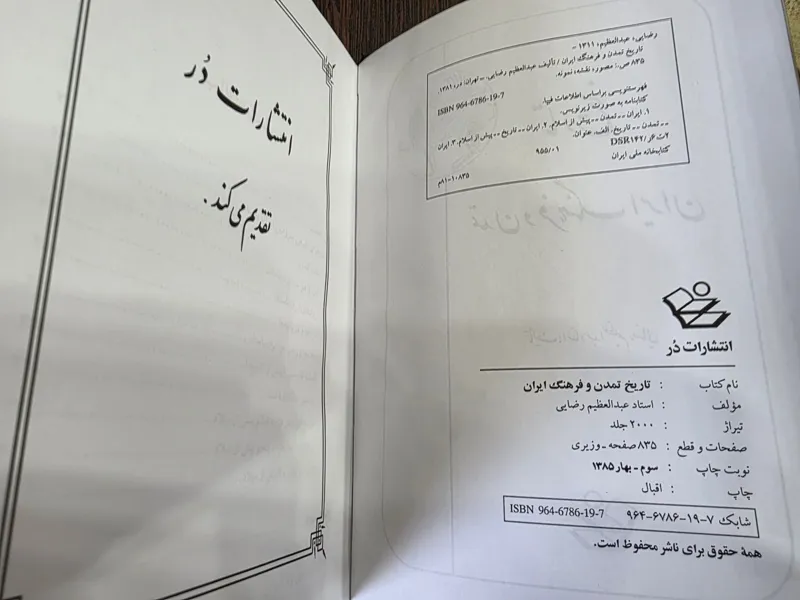 رضایی، عبدالعظیم، ۱۳۱۱ -
تاریخ تمدن و فرهنگ ایران / تألیف عبدالعظیم رضایی. ــ تهران: در، ۱۳۸۱.
۸۳۵ ص.: مصور، نقشه، نمونه.
ISBN 964-6786-19-7
فهرستنویسی براساس اطلاعات فیپا.
کتابنامه به صورت زیرنویس.
۱. ایران -- تمدن -- پیش از اسلام. ۲. ایران -- تاریخ -- پیش از اسلام. ۳. ایران
-- تمدن -- تاریخ. الف. عنوان.
۲ت۶ر/DSR۱۴۲ ۹۵۵/۰۱
کتابخانه ملی ایران ۱۰۸۳۵-۸۱م
انتشارات دُر
نام کتاب : تاریخ تمدن و فرهنگ ایران
مؤلف : استاد عبدالعظیم رضایی
تیراژ : ۲۰۰۰ جلد
صفحات و قطع : ۸۳۵ صفحه ـ وزیری
نوبت چاپ : سوم ـ بهار ۱۳۸۵
چاپ : اقبال
شابک ۷-۱۹-۶۷۸۶-۹۶۴ ISBN 964-6786-19-7
همه حقوق برای ناشر محفوظ است.
انتشارات دُر
تقدیم می‌کند.